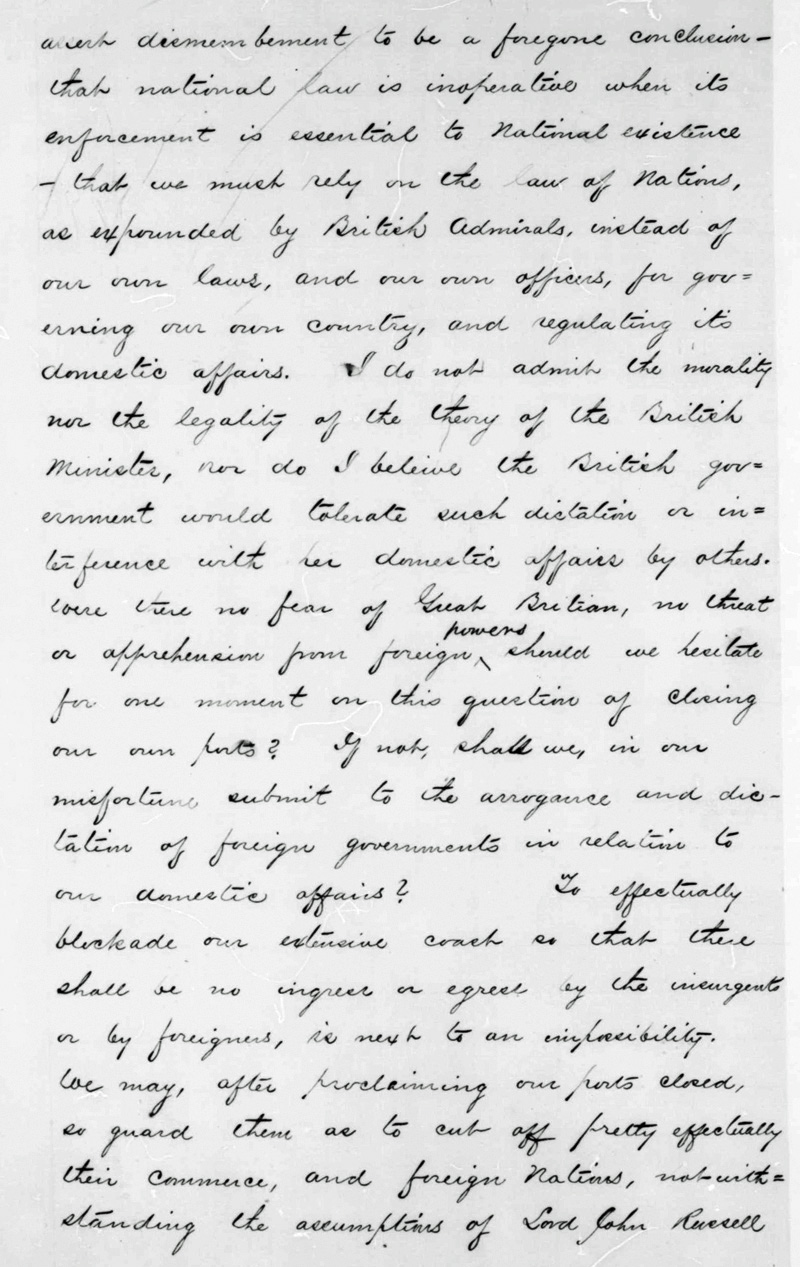 assert dismembement to be a foregone conclusion—
that national law is inoperative when its
enforcement is essential to National existence
- that we must rely on the law of Nations,
as expounded by British Admirals, instead of
our own laws, and our own officers, for gov=
erning our own country, and regulating its
domestic affairs. I do not admit the morality
nor the legality of the theory of the British
Minister, nor do I beleive the British gov=
ernment would tolerate such dictation or in=
terference with her domestic affairs by others.
Were there no fear of Great Britian, no threat
powers
or apprehension from foreign, should we hesitate
for one moment on this question of closing
our own ports? If not, shall we, in our
misfortune submit to the arrogance and dic-
tation of foreign governments in relation to
our domestic affairs? To effectually
blockade our extensive coast so that there
shall be no ingress or egress by the insurgents
or by foreigners, is next to an impossibility.
We may, after proclaiming our ports closed,
so guard them as to cut off pretty effectually
their commerce, and foreign Nations, not-with=
standing the assumptions of Lord John Russell